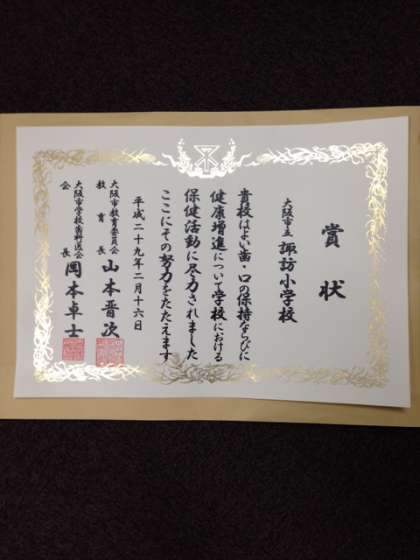 賞状
大阪市立 諏訪小学校
貴校はよい歯・口の保持ならびに
健康増進について学校における
保健活動に尽力されました
ここにその努力をたたえます
平成二十九年二月十六日
大阪市教育委員会
教育長 山本晋次
大阪市学校歯科医会
会長 岡本卓士